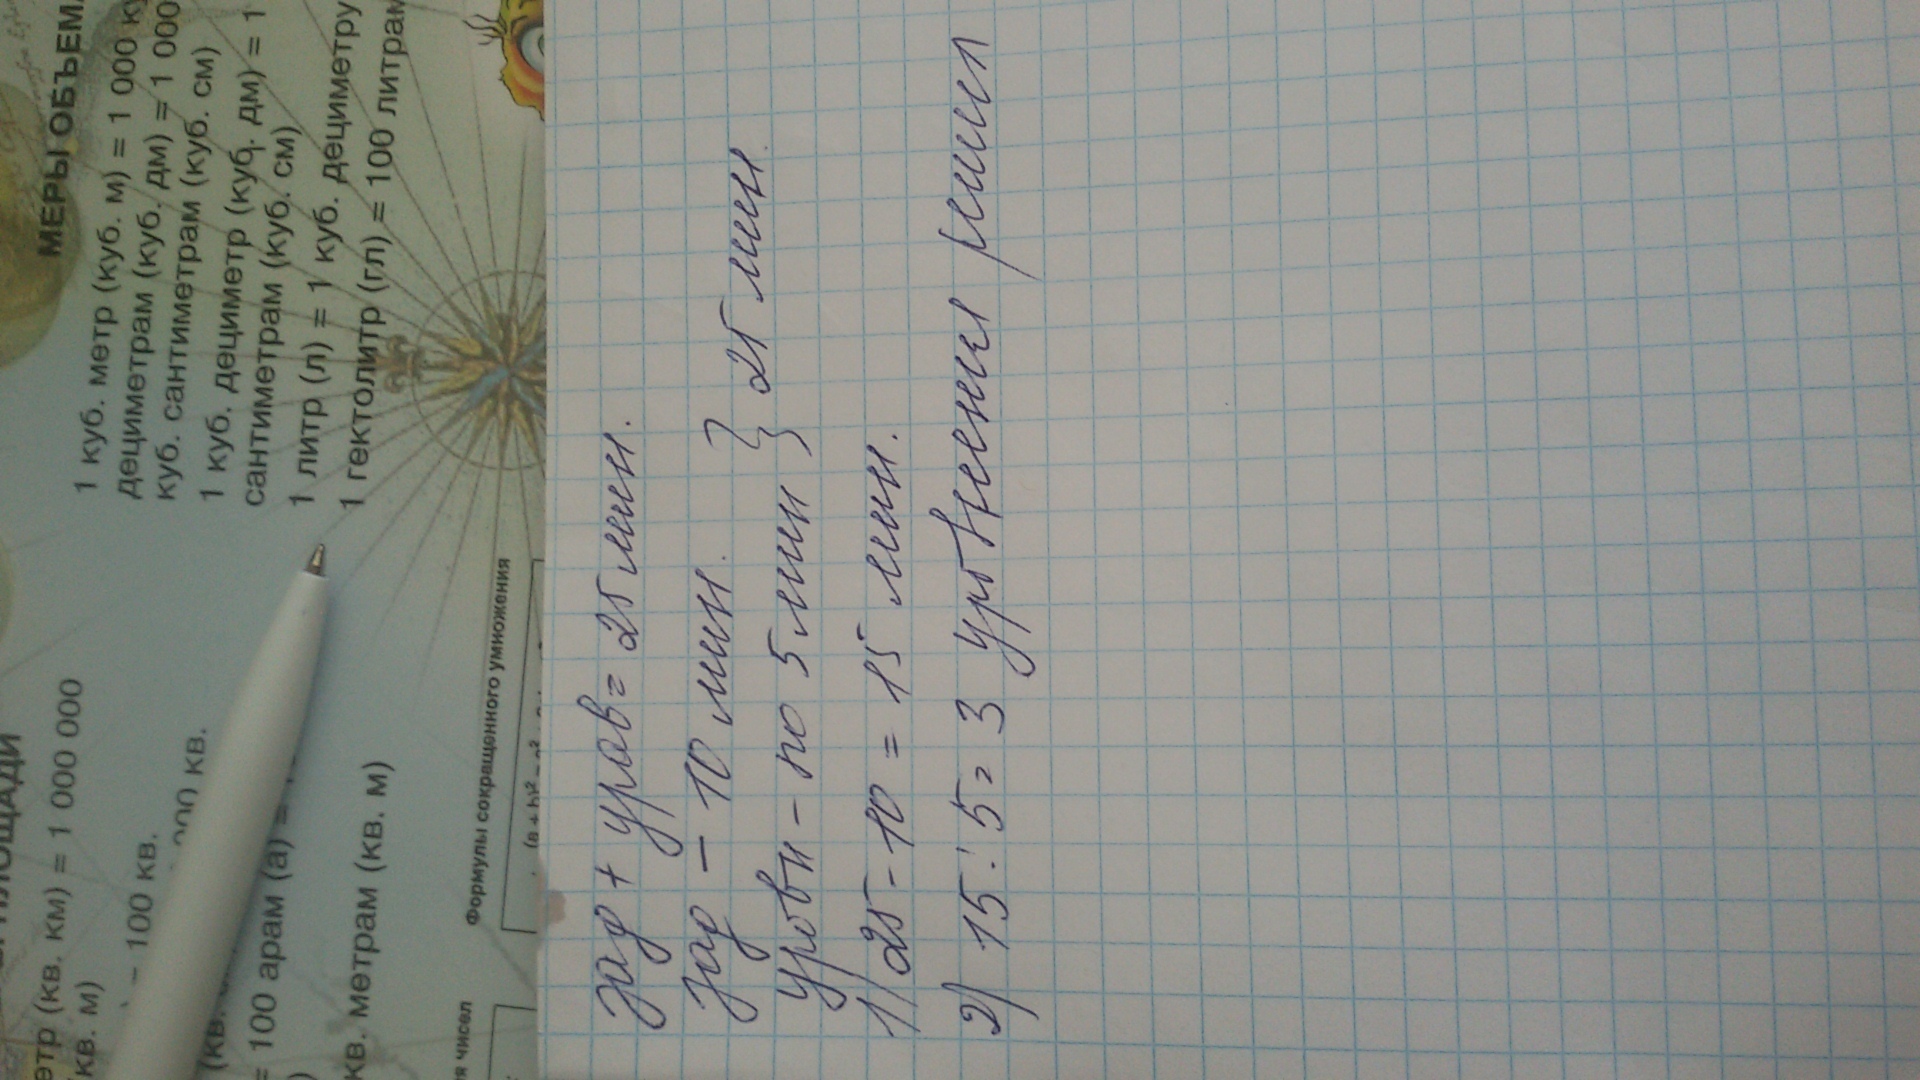 МЕРЫ ОБЪЕМ
1 куб. метр (куб. м) = 1 000 ку
дециметрам (куб. дм) = 1 000
куб. сантиметрам (куб. см)
1 куб. дециметр (куб. дм) = 1
сантиметрам (куб. см)
1 литр (л) = 1 куб. дециметру
1 гектолитр (гл) = 100 литрам
етр (кв. км) = 1 000 000
кв. м)
= 100 кв.
000 кв.
(кв.
= 100 арам (а) =
кв. метрам (кв. м)
Формулы сокращенного умножения
чисел
зад + уров = 25 мин.
зад – 10 мин.
уровн – по 5 мин } 25 мин.
1) 25 - 10 = 15 мин.
2) 15 : 5 = 3 урбнения решил